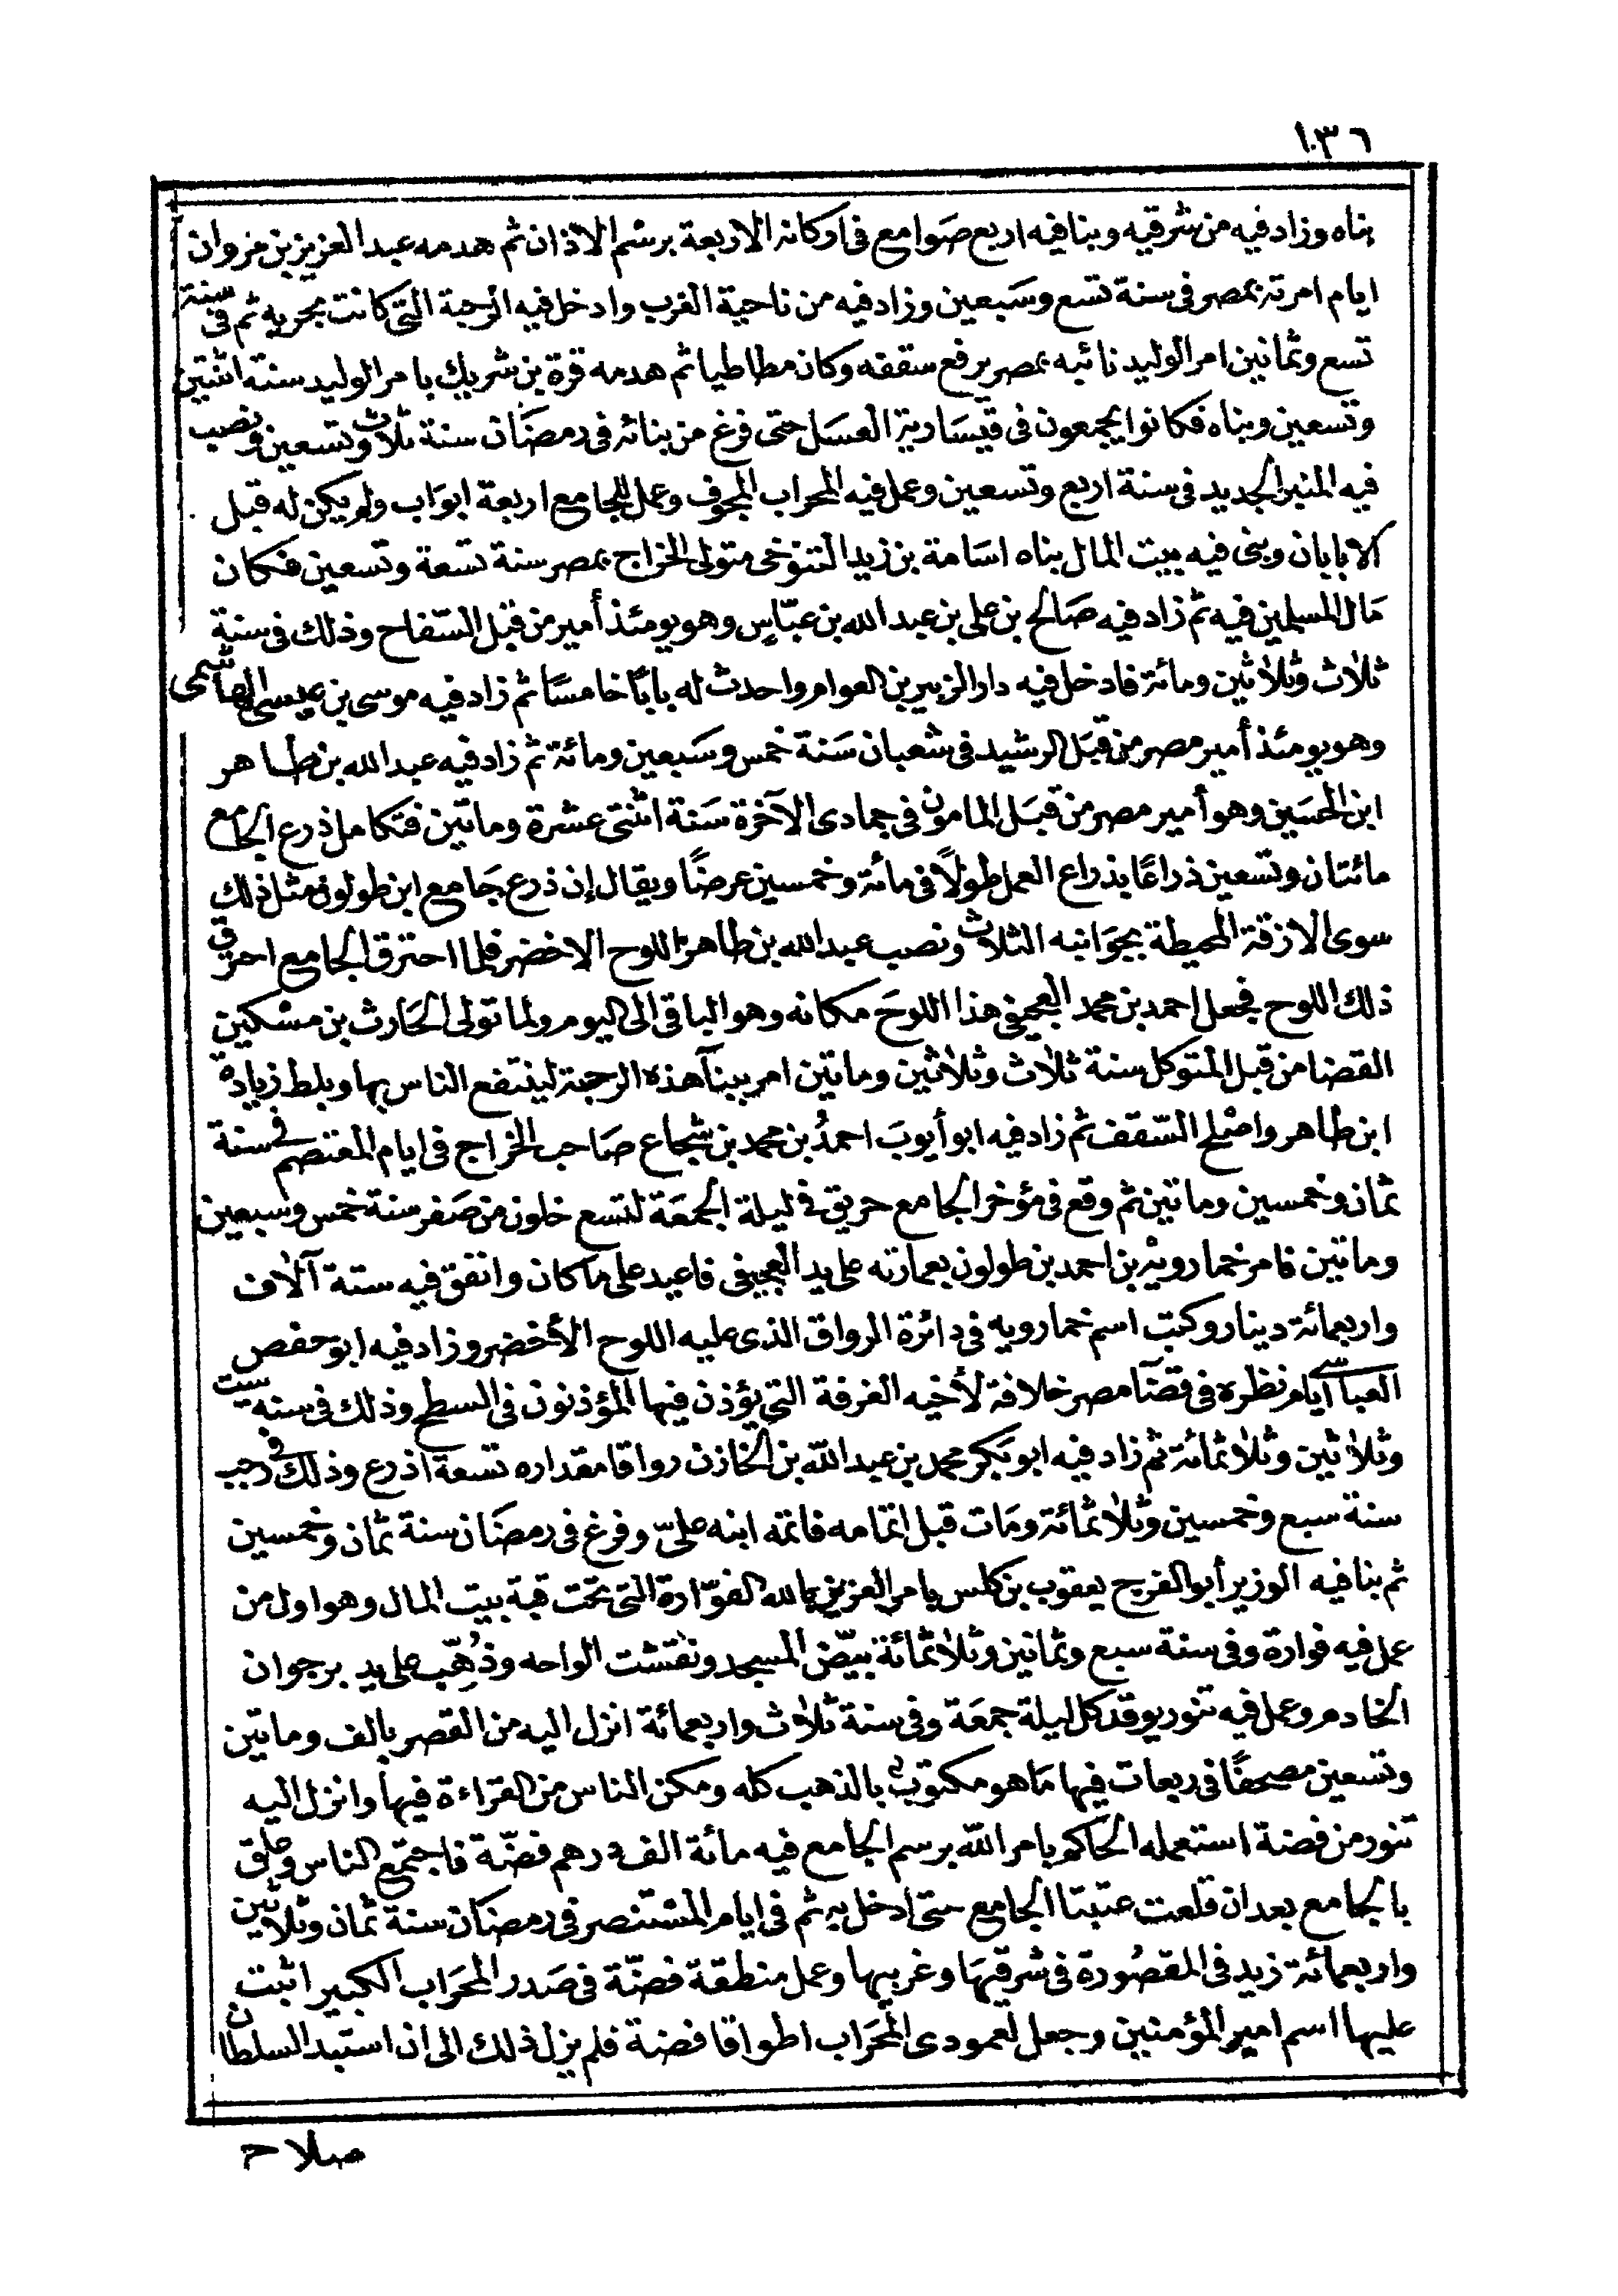 ١٣٦
بناه وزاد فيه من شرقيه وبنا فيه اربع صوامع في اركانه الاربعة برسم الاذان ثم هدمه عبد العزيز بن مروان
ايام امرته بمصر فى سنة تسع وسبعين وزاد فيه من ناحية الغرب وادخل فيه الرحبة التى كانت بحريه ثم فى سنة
تسع وثمانين امر الوليد نائبه بمصر برفع سقفه وكان مطاطيا ثم هدمه قرة بن شريك بامر الوليد سنة اثنتين
وتسعين وبناه فكانوا يجمعون فى قيسارية العسل حتى فرغ من بنائه فى رمضان سنة ثلاث وتسعين ونصب
فيه المنبر الجديد فى سنة اربع وتسعين وعمل فيه المحراب المجوف وعمل للجامع اربعة ابواب ولم يكن له قبل
الا بابان وبنى فيه بيت المال بناه اسامة بن زيد التنوخى متولى الخراج بمصر سنة تسعة وتسعين فكان
مال المسلمين فيه ثم زاد فيه صالح بن على بن عبد الله بن عبّاسٍ وهو يومئذ أمير من قبل السّفاح وذلك فى سنة
ثلاث وثلاثين ومائة فادخل فيه دار الزبير بن العوام واحدث له بابًا خامسًا ثم زاد فيه موسى بن عيسى الهاشمى
وهو يومئذ أمير مصر من قبل الرشيد فى شعبان سنة خمس وسبعين ومائة ثم زاد فيه عبد الله بن طاهر
ابن الحسين وهو أمير مصر من قبل المامون فى جمادى الآخرة سنة اثنتى عشرة وماتين فتكامل ذرع الجامع
مائتان وتسعين ذراعًا بذراع العمل طولًا فى مائة وخمسين عرضًا ويقال إن ذرع جامع ابن طولون مثل ذلك
سوى الازقة المحيطة بجوانبه الثلاث ونصب عبد الله بن طاهر اللوح الاخضر فلما احترق الجامع احرق
ذلك اللوح فجعل احمد بن محمد العجيفى هذا اللوح مكانه وهو الباقى الى اليوم ولما تولى الحارث بن مسكين
القضا من قبل المتوكل سنة ثلاث وثلاثين وماتين امر ببنآ هذه الرحبة لينتفع الناس بها وبلط زيادة
ابن طاهر واصلح السّقف ثم زاد فيه ابو أيوب احمدُ بن محمد بن شجاع صاحب الخراج فى ايام المعتصم فى سنة
ثمان وخمسين وماتين ثم وقع فى مؤخر الجامع حريق فى ليلة الجمعة لتسع خلون من صفر سنة خمس وسبعين
وماتين فامر خمارويْه بن احمد بن طولون بعمارته على يد العجيفى فاعيد على ما كان وانفق فيه ستة آلاف
واربعمائة دينار وكتب اسم خمارويه فى دائرة الرواق الذى عليه اللوح الأخضر وزاد فيه ابو حفص
العباسى أيام نظره فى قضآ مصر خلافة لأخيه الغرفة التى يؤذن فيها المؤذنون فى السطح وذلك فى سنة ست
وثلاثين وثلاثمائة ثم زاد فيه ابو بكر محمد بن عبد اللّه بن الخازن رواقا مقداره تسعة اذرع وذلك فى رجب
سنة سبع وخمسين وثلاثمائة ومات قبل اتمامه فاتمه ابنه علىّ وفرغ فى رمضان سنة ثمان وخمسين
ثم بنا فيه الوزير أبو الفرج يعقوب بن كلس بامر العزيز بالله الفوّارة التى تحت قبة بيت المال وهو اول من
عمل فيه فوارة وفى سنة سبع وثمانين وثلاثمائة بيّض المسجد ونقشت الواحه وذُهِّب على يد برجوان
الخادم وعمل فيه تنور يوقد كل ليلة جمعة وفى سنة ثلاث واربعمائة انزل اليه من القصر بالف وماتين
وتسعين مصحفًا فى ربعات فيها ما هو مكتوب بالذهب كله ومكن الناس من القراءة فيها وانزل اليه
تنور من فضة استعمله الحاكم بامر اللّه برسم الجامع فيه مائة الف درهم فضّة فاجتمع الناس وعلق
بالجامع بعد ان قلعت عتبتا الجامع حتى ادخل به ثم فى ايام المستنصر فى رمضان سنة ثمان وثلاثين
واربعمائة زيد فى المقصُورة فى شرقيها وغربيها وعمل منطقة فضّة فى صدر المحراب الكبير اثبت
عليها اسم امير المؤمنين وجعل لعمودى المحراب اطواقا فضة فلم يزل ذلك الى ان استبد السلطان
صلاح